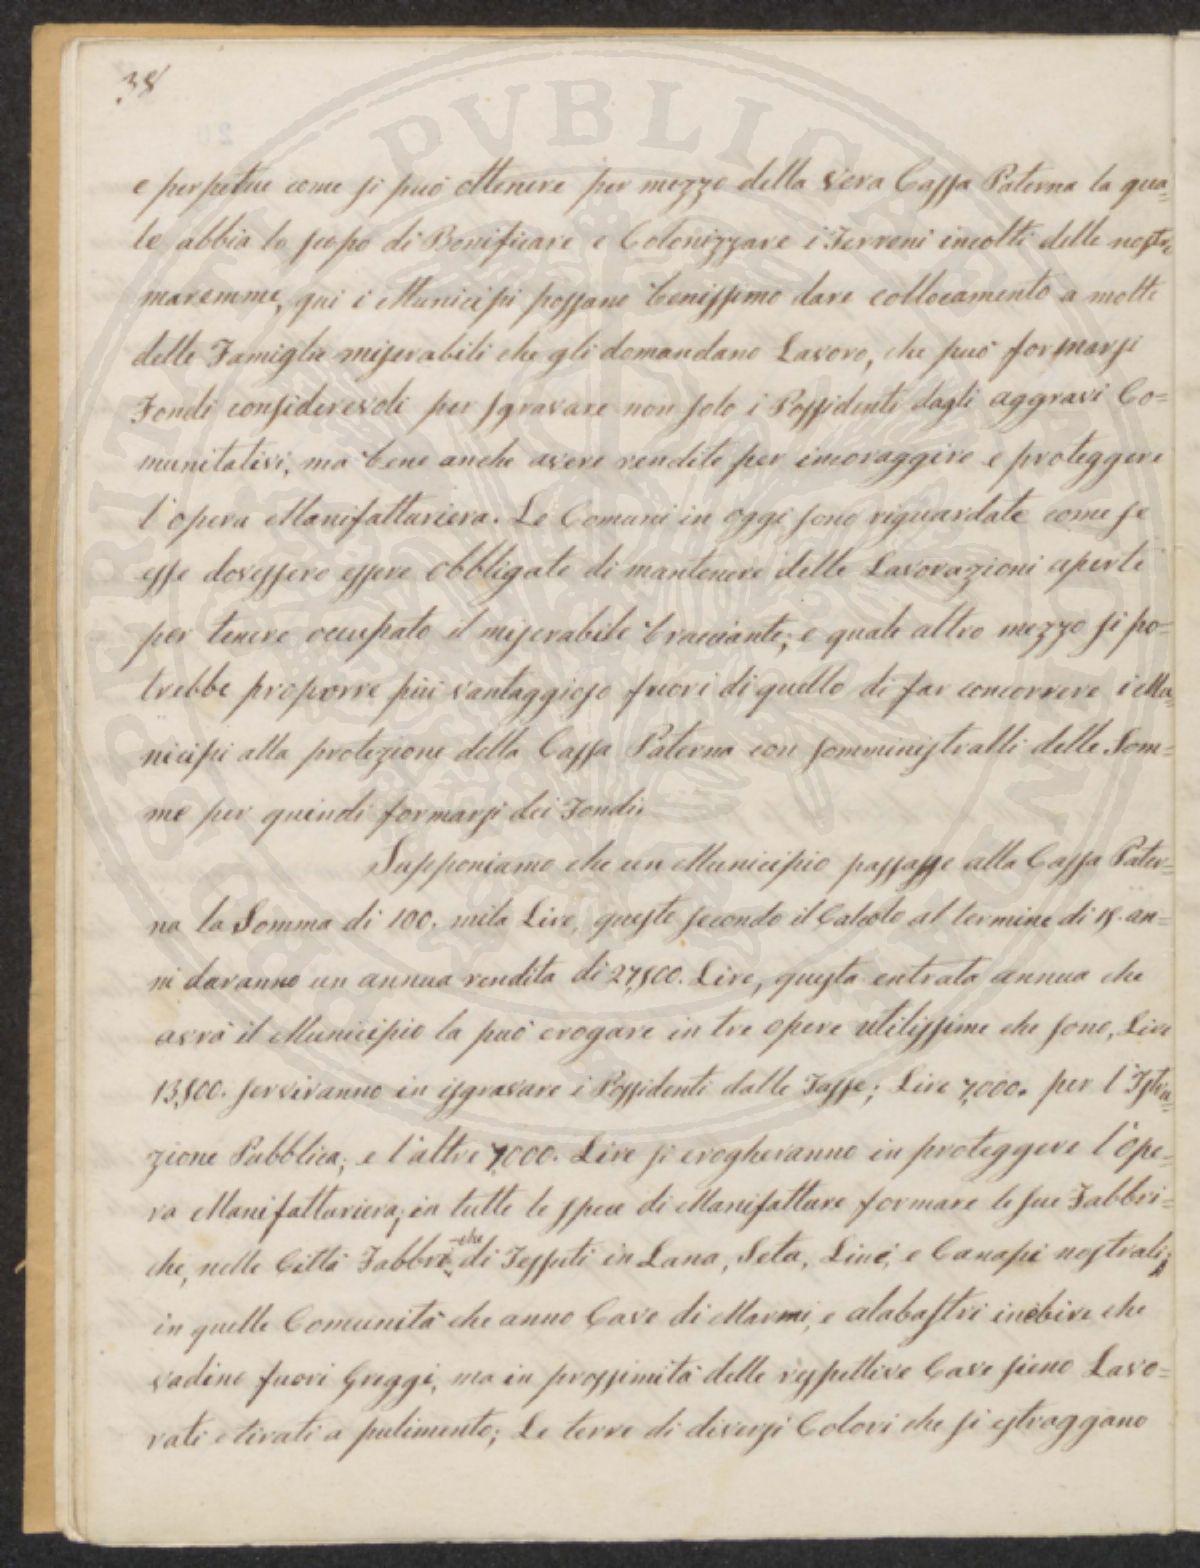 38
e perpetue come si può ottenere per mezzo della vera Cassa Paterna la qua=
le abbia lo scopo di Bonificare e Colonizzare i Terreni incolti delle nostre
maremme, qui i Municipi possano benissimo dare collocamento a molte
delle Famiglie miserabili che gli domandano Lavoro, che può formarsi
Fondi considerevoli per sgravare non solo i Possidenti dagli aggravi Co=
munitativi, ma bene anche avere rendite per incoraggire e proteggere
l'opera Manifatturiera. Le Comuni in oggi sono riguardate come se
esse dovessero essere obbligate di mantenere delle Lavorazioni aperte
per tenere occupato il miserabile bracciante; e quale altro mezzo si po=
trebbe proporre più vantaggioso fuori di quello di far concorrere i Mu=
nicipi alla protezione della Cassa Paterna con somministralli delle Som=
me per quindi formarsi dei Fondi.
Supponiamo che un Municipio passasse alla Cassa Pater=
na la Somma di 100. mila Lire, queste secondo il Calcolo al termine di 18. an=
ni daranno un annua rendita di 27,500. Lire, questa entrata annua che
avrà il Municipio la può erogare in tre opere utilissime che sono, Lire
13,500. serviranno in isgravare i Possidenti dalle Tasse; Lire 7,000. per l'Istru=
zione Pubblica; e l'altre 7,000. Lire si erogheranno in proteggere l'ope=
ra Manifatturiera; in tutte le spece di Manifatture formare le sue Fabbri=
che, nelle Città Fabbriche di Tessuti in Lana, Seta, Line, e Canape nostrali;
in quelle Comunità che anno Cave di Marmi, e alabastri inibire che
vadino fuori Greggi, ma in prossimità delle rispettive Cave sieno Lavo=
rati e tirati a pulimento; Le terre di diversi Colori che si estraggano
PROSPERITATI PVBLICAE AVGENDAE